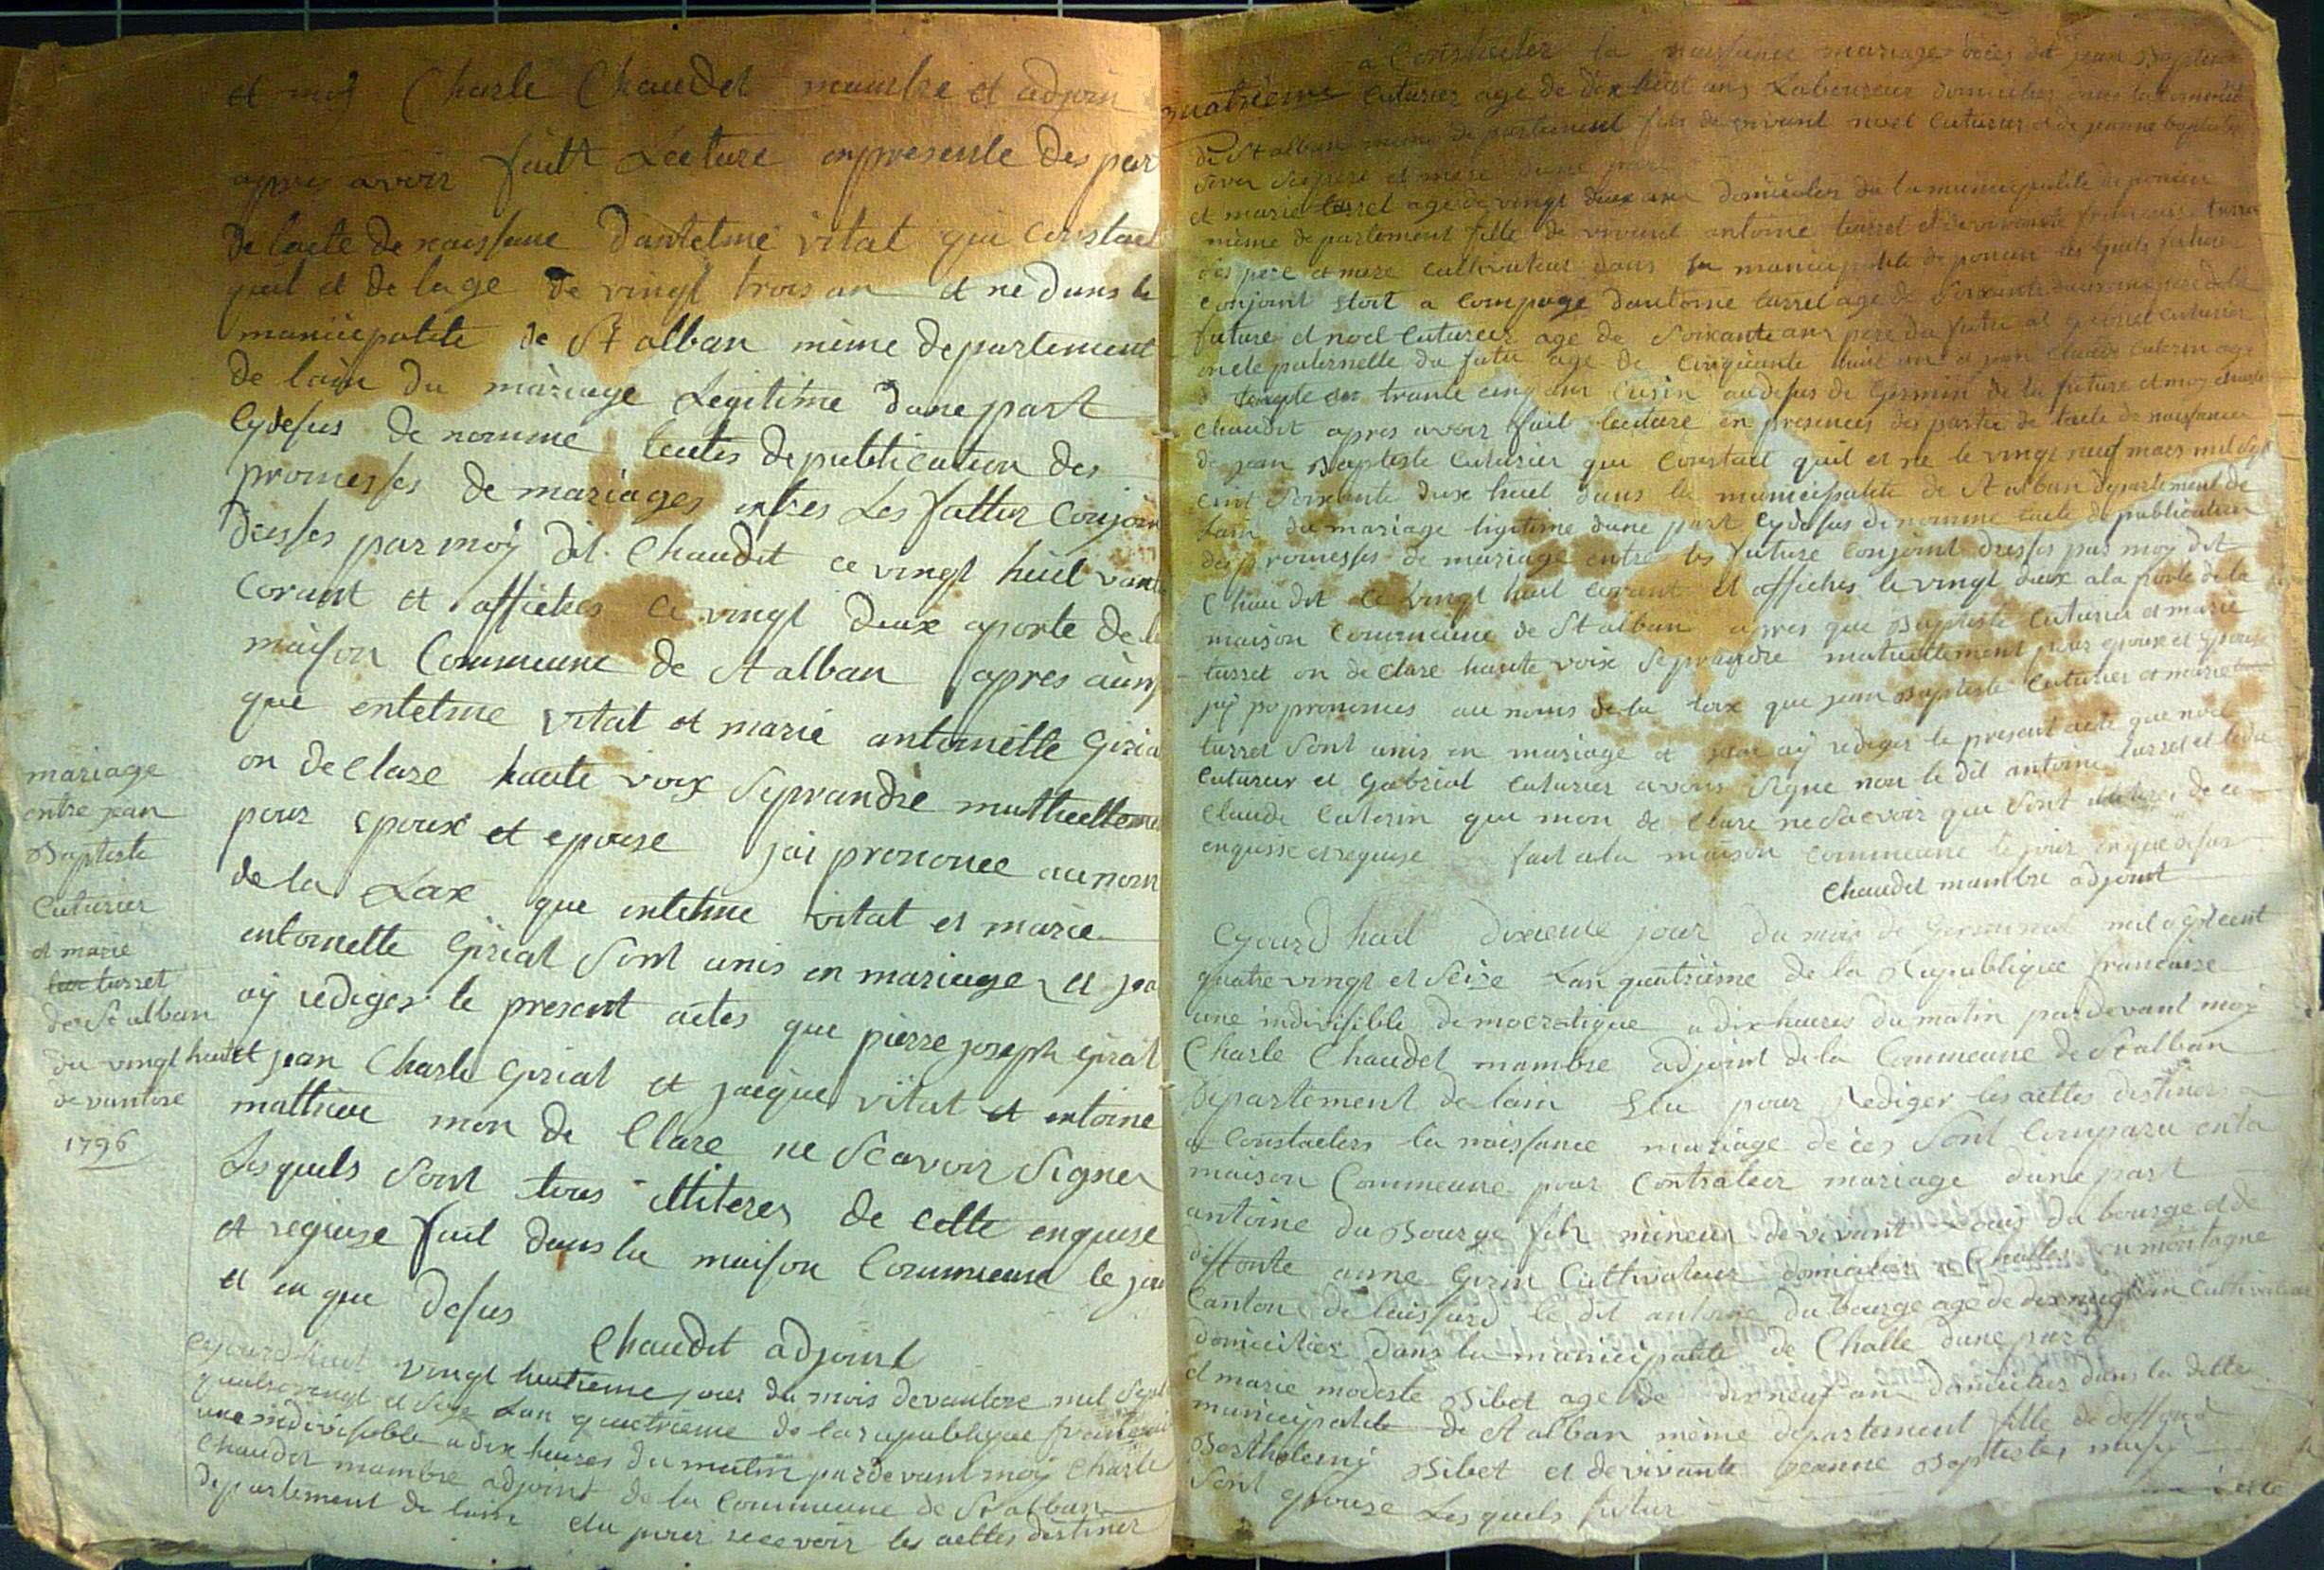 et moy Charle Chaudet mambre et adjoin
apres avoir fait Lecture enpresente des par
de lacte de naissane dantelme vital qui Constact
quil et de lage de vingt trois an et ne dans la
municipalite de St alban même departement
de lain du mariage Legitime dune part
Cydesus de nomme lactes depublication des
promesses de mariages entres Les fattur Conjoin
dresses par moy dit Chaudet ce vingt huit vant
Corant et affiches ce vingt deux aporte de la
maison Commeune de St alban apres
que entelme vital et marie antoinette Giria
on declare haute voix Seprandre muttuelleme
pour epoux et epouse jai prononce aunom
de la Lax que entelme vital et marie
entoinette Girial Sont unis en mariage et jea
aÿ rediger le present actes que pierre joseph Girial
et jean Charle Girial et jacque vital et entoine
mathieu mon de Clare ne Scavoir Signer
Lesquels Sont tous illiteres de cette enquise
et requise fait dans la maison Commeune le jou
et en que desus
Chaudet adjoint
mariage
entre jean
Baptiste
Cuturier
et marie
turret
de St alban
du vingt huit
de vantose
1796
Cejourdhuit vingt huitieme jour du mois devantose mil Sept
quatrevingt et Seize Lan quatrieme de la republique francaise
une indivisible a dix heures du matin pardevant moy Charle
Chaudet mambre adjoint de la Commeune de St alban
departement de lain elu pour recevoir les acttes destiner
a Constacter la naissance mariage deces dit jean Baptiste
quatrieme Cuturier age de dix huit ans Laboureur domicilier
de St alban meme departement fils de vivant noel Cuturier et de jeanne baptiste
Ses pere et mere dune part
et marie turret age de vingt deux an domicilier de la municipalite de poncin
même departement fille de vivant antoine turret et francoise
Ses pere et mere Cultivateur dans la municipalite de poncin les quels future
Conjoint Stoit a Compage dantoine turret age de Soixante pere de la
future et noel Cutureur age de Soixante ans pere du futur et Cuturier
oncle paternelle du futur age de Cinquante huit an et jean Claude Caterin age
de trante cinq ans Cusin audesus de Germin de la future et moy Charle
Chaudet apres avoir fait lecture en presences des partie de lacte de naissance
de jean Baptiste Cuturier qui Constact quil et ne le vingt neuf mars mil Sept
cent Soixante dixe huit dans la municipalite de St alban departement de
lain du mariage ligitime dune part Cydesus denomme lacte de publication
des promesses de mariage entre les future Conjoint dresses par moy dit
Chaudet ce vingt huit corant et affiches le vingt deux a la porte de la
maison Commeune de St alban apres que Baptiste Cuturier et marie
turret on declare haute voix Seprandre mutuellement pour epoux et epouse
jay prononces au noms de la loix que jean Baptiste Cuturier et marie
turret Sont unis en mariage et jean aÿ rediger le present acte que noel
Cutureur et Gabrial Cuturier avons Signe non le dit antoine turret et le dit
Claude Caterin que mon de Clare ne Scavoir que Sont illiteres de ce
enquisse et requise fait ala maison Commeune le jour en que desus
Chaudet mambre adjoint
Cejourdhuit dixieme jour du mois de Germinal mil Septcent
quatre vingt et Seize Lan quatrieme de la Republique francaise
une indivisible democratique a dix heures du matin pardevant moy
Charle Chaudet mambre adjoint de la Commeune de St alban
departement de lain Elu pour Rediger les acttes destiner
a Constacters la naissance mariage deces Sont Comparu enla
maison Commeune pour Contracter mariage dune part
antoine du Bourge fils mineur devivant Louis du bourge et de
deffonte anne Girin Cultivateur domicilier a Challes en montagne
Canton de le dit antoine du bourge age de dix neuf an Cultivateur
domicilier dans la municipalite de Challe dune part
et marie modeste Bibet age de dixneuf an domicilier dans la ditte
municipalite de St alban même departement fille de deffont
Barthelemy Bibet et devivante jeanne Baptiste
Sont epouse Lesquels futur